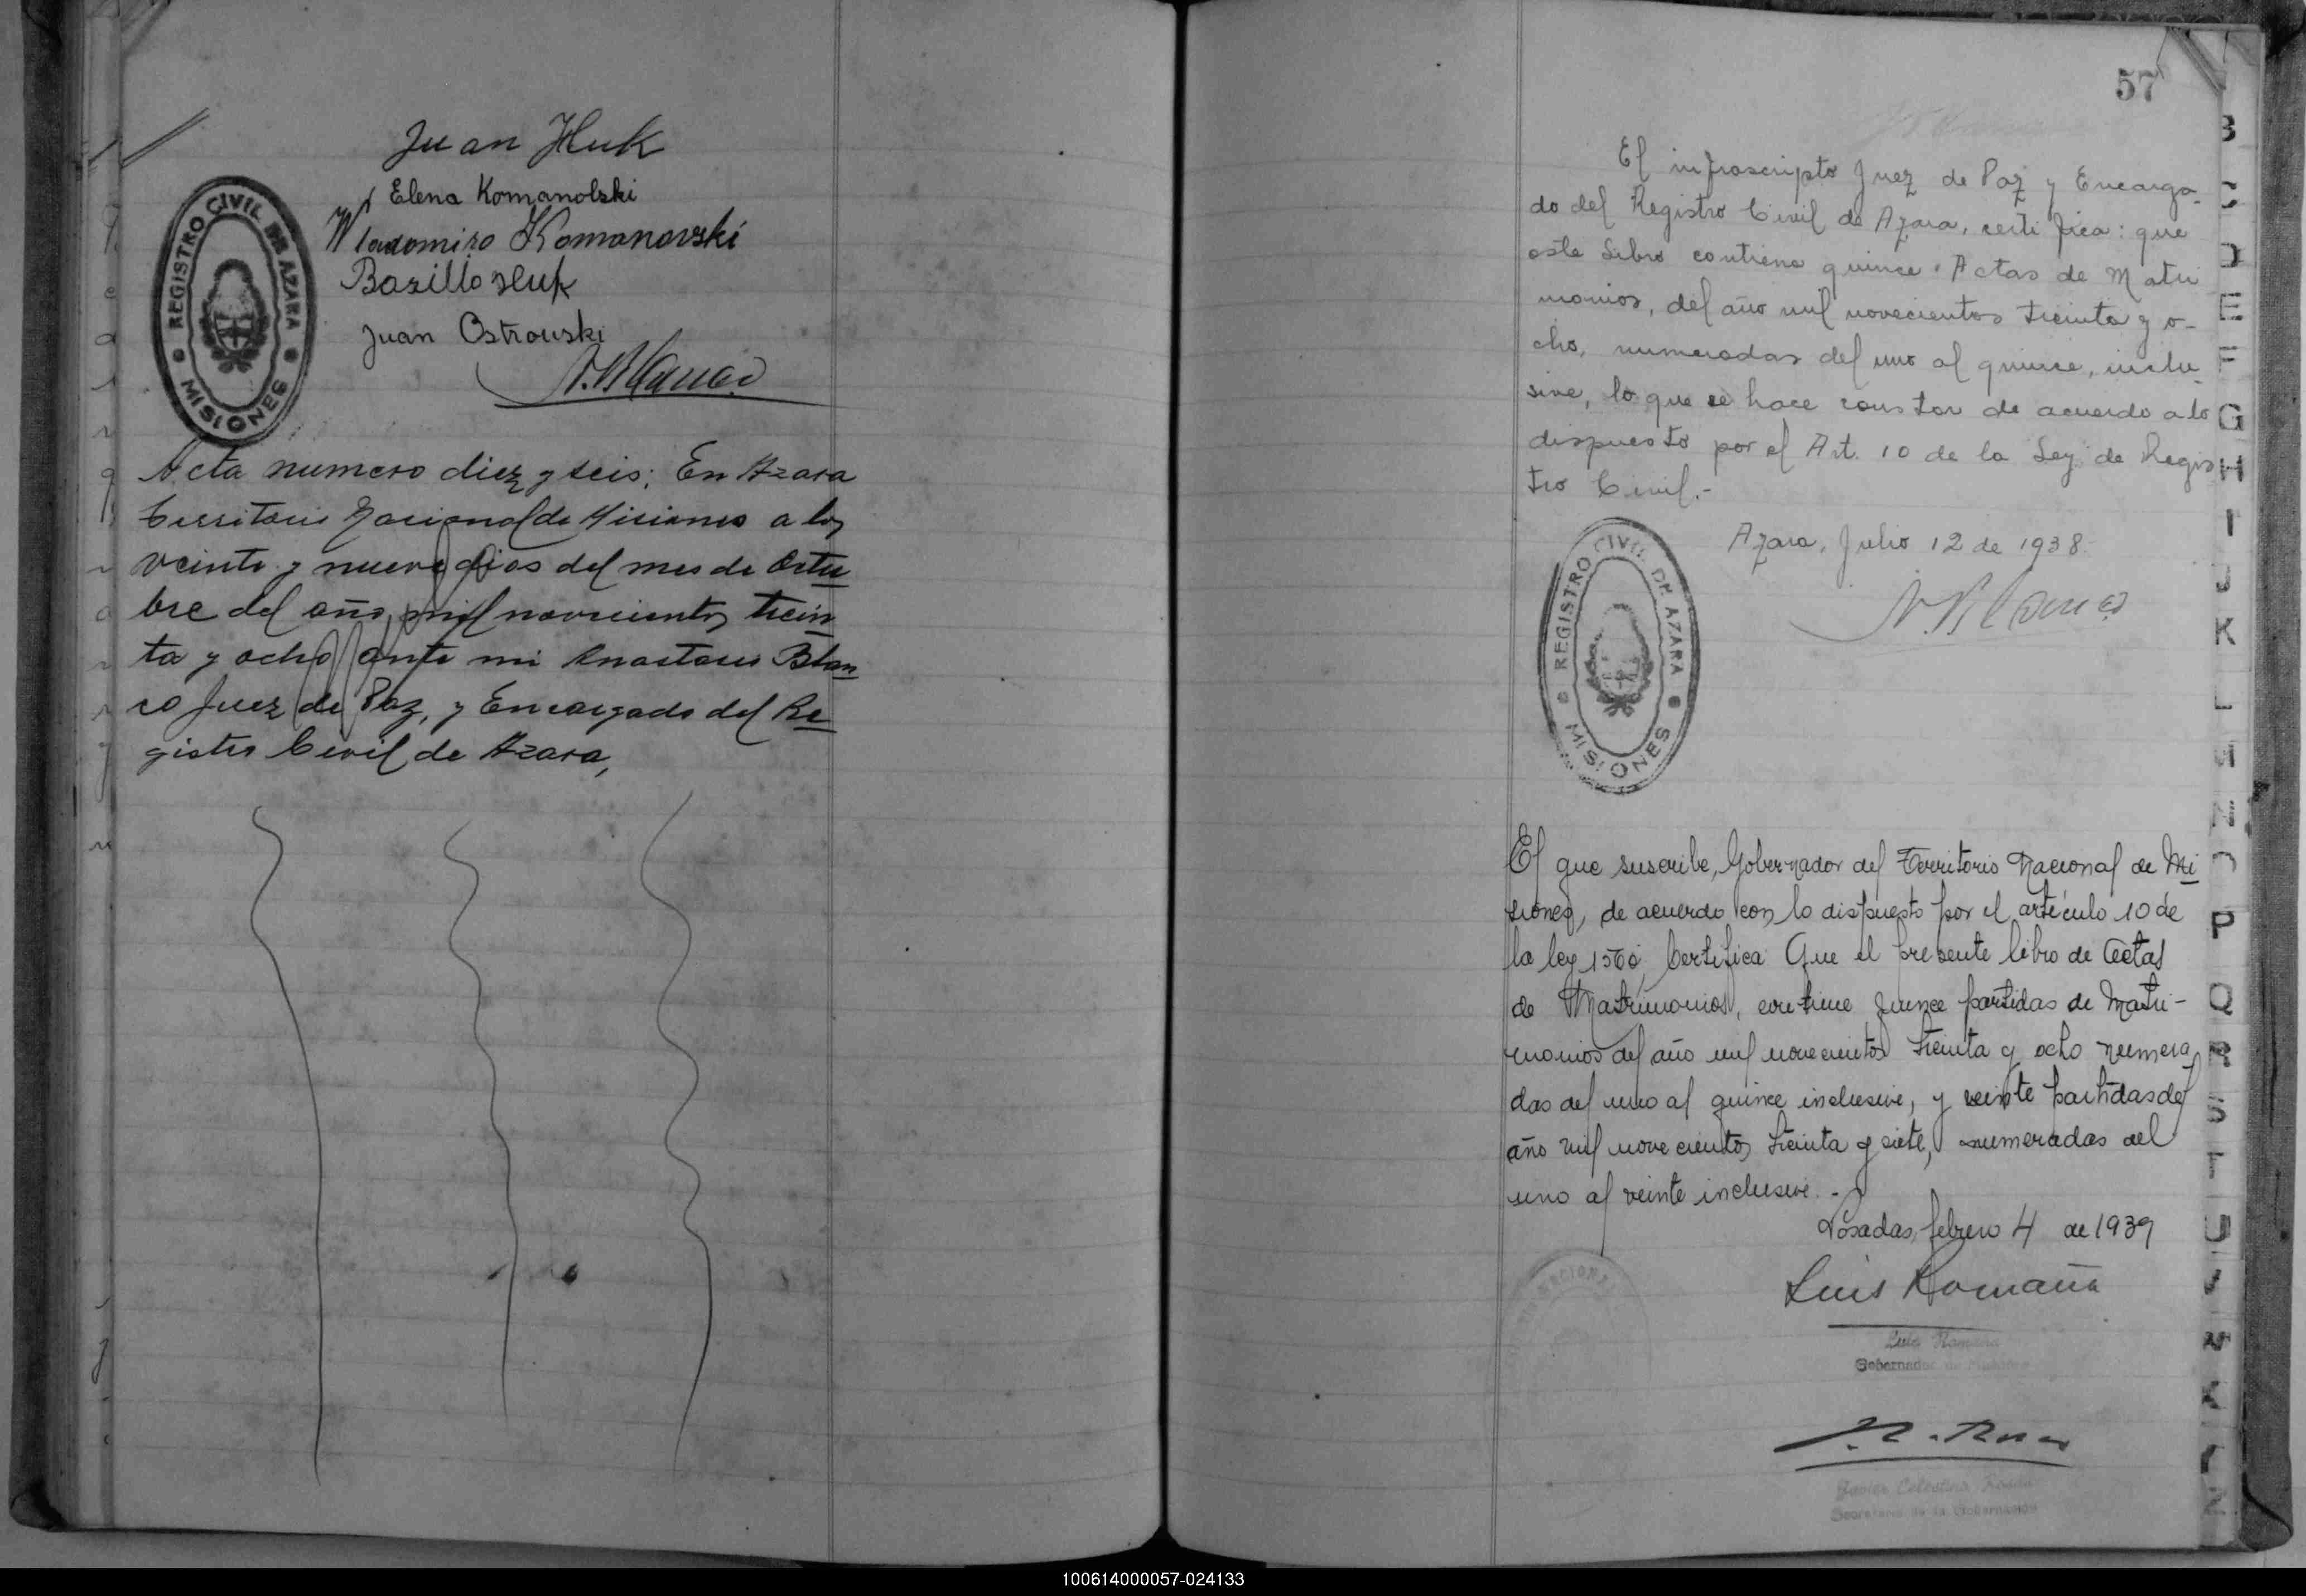 Juan Huk
Elena Komanolski
Wladomiro Komanovski
Bazillo Huk
Juan Ostrouski
A. Blanco
REGISTRO CIVIL DE AZARA
MISIONES
Acta numero diez y seis: En Azara
Territorio Nacional de Misiones a los
veinte y nueve dias del mes de Octu
bre del año mil novecientos trein
ta y ocho ante mi Anastacio Blan
co Juez de Paz, y Encargado del Re
gistro Civil de Azara,
57
El infrascripto Juez de Paz y Encarga-
do del Registro Civil de Azara, certifica: que
este Libro contiene quince Actas de Matri
monios, del año mil novecientos treinta y o-
cho, numeradas del uno al quince, inclu-
sive, lo que se hace constar de acuerdo a lo
dispuesto por el Art. 10 de la Ley de Regis
tro Civil.-
Azara, Julio 12 de 1938.
A. Blanco
REGISTRO CIVIL DE AZARA
MISIONES
El que suscribe, Gobernador del Territorio Nacional de Mi
siones, de acuerdo con lo dispuesto por el artículo 10 de
la ley 1565, Certifica Que el presente libro de Actas
de Matrimonios, contiene quince partidas de Matri-
monios del año mil novecientos treinta y ocho numera
das del uno al quince inclusive, y veinte partidas del
año mil novecientos treinta y siete, numeradas del
uno al veinte inclusive.-
Posadas, febrero 4 de 1939
Luis Romaña
Luis Romaña
Gobernador de Misiones
Secretario de la Gobernación
B
C
D
E
F
G
H
I
J
K
L
M
N
O
P
Q
R
S
T
U
V
W
X
Y
Z
100614000057-024133